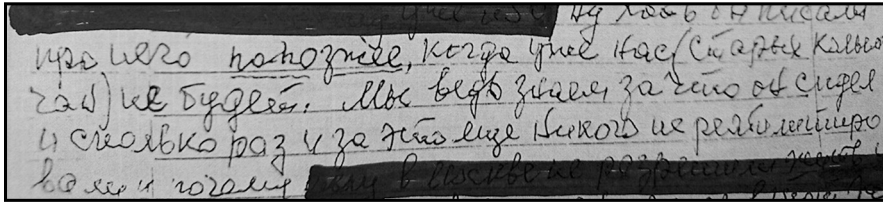 уже Ну хоть бы писали
про него попозже, когда уже нас (старых колым
чан) не будет. Мы ведь знаем за что он сидел
и сколько раз и за это еще никого не реабилитиро
вали и почему ему в Москве не разрешили жить